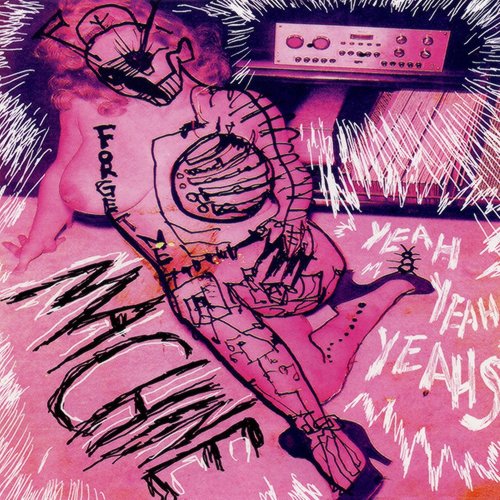 FORGET
MACHINE
YEAH
YEAH
YEAHS